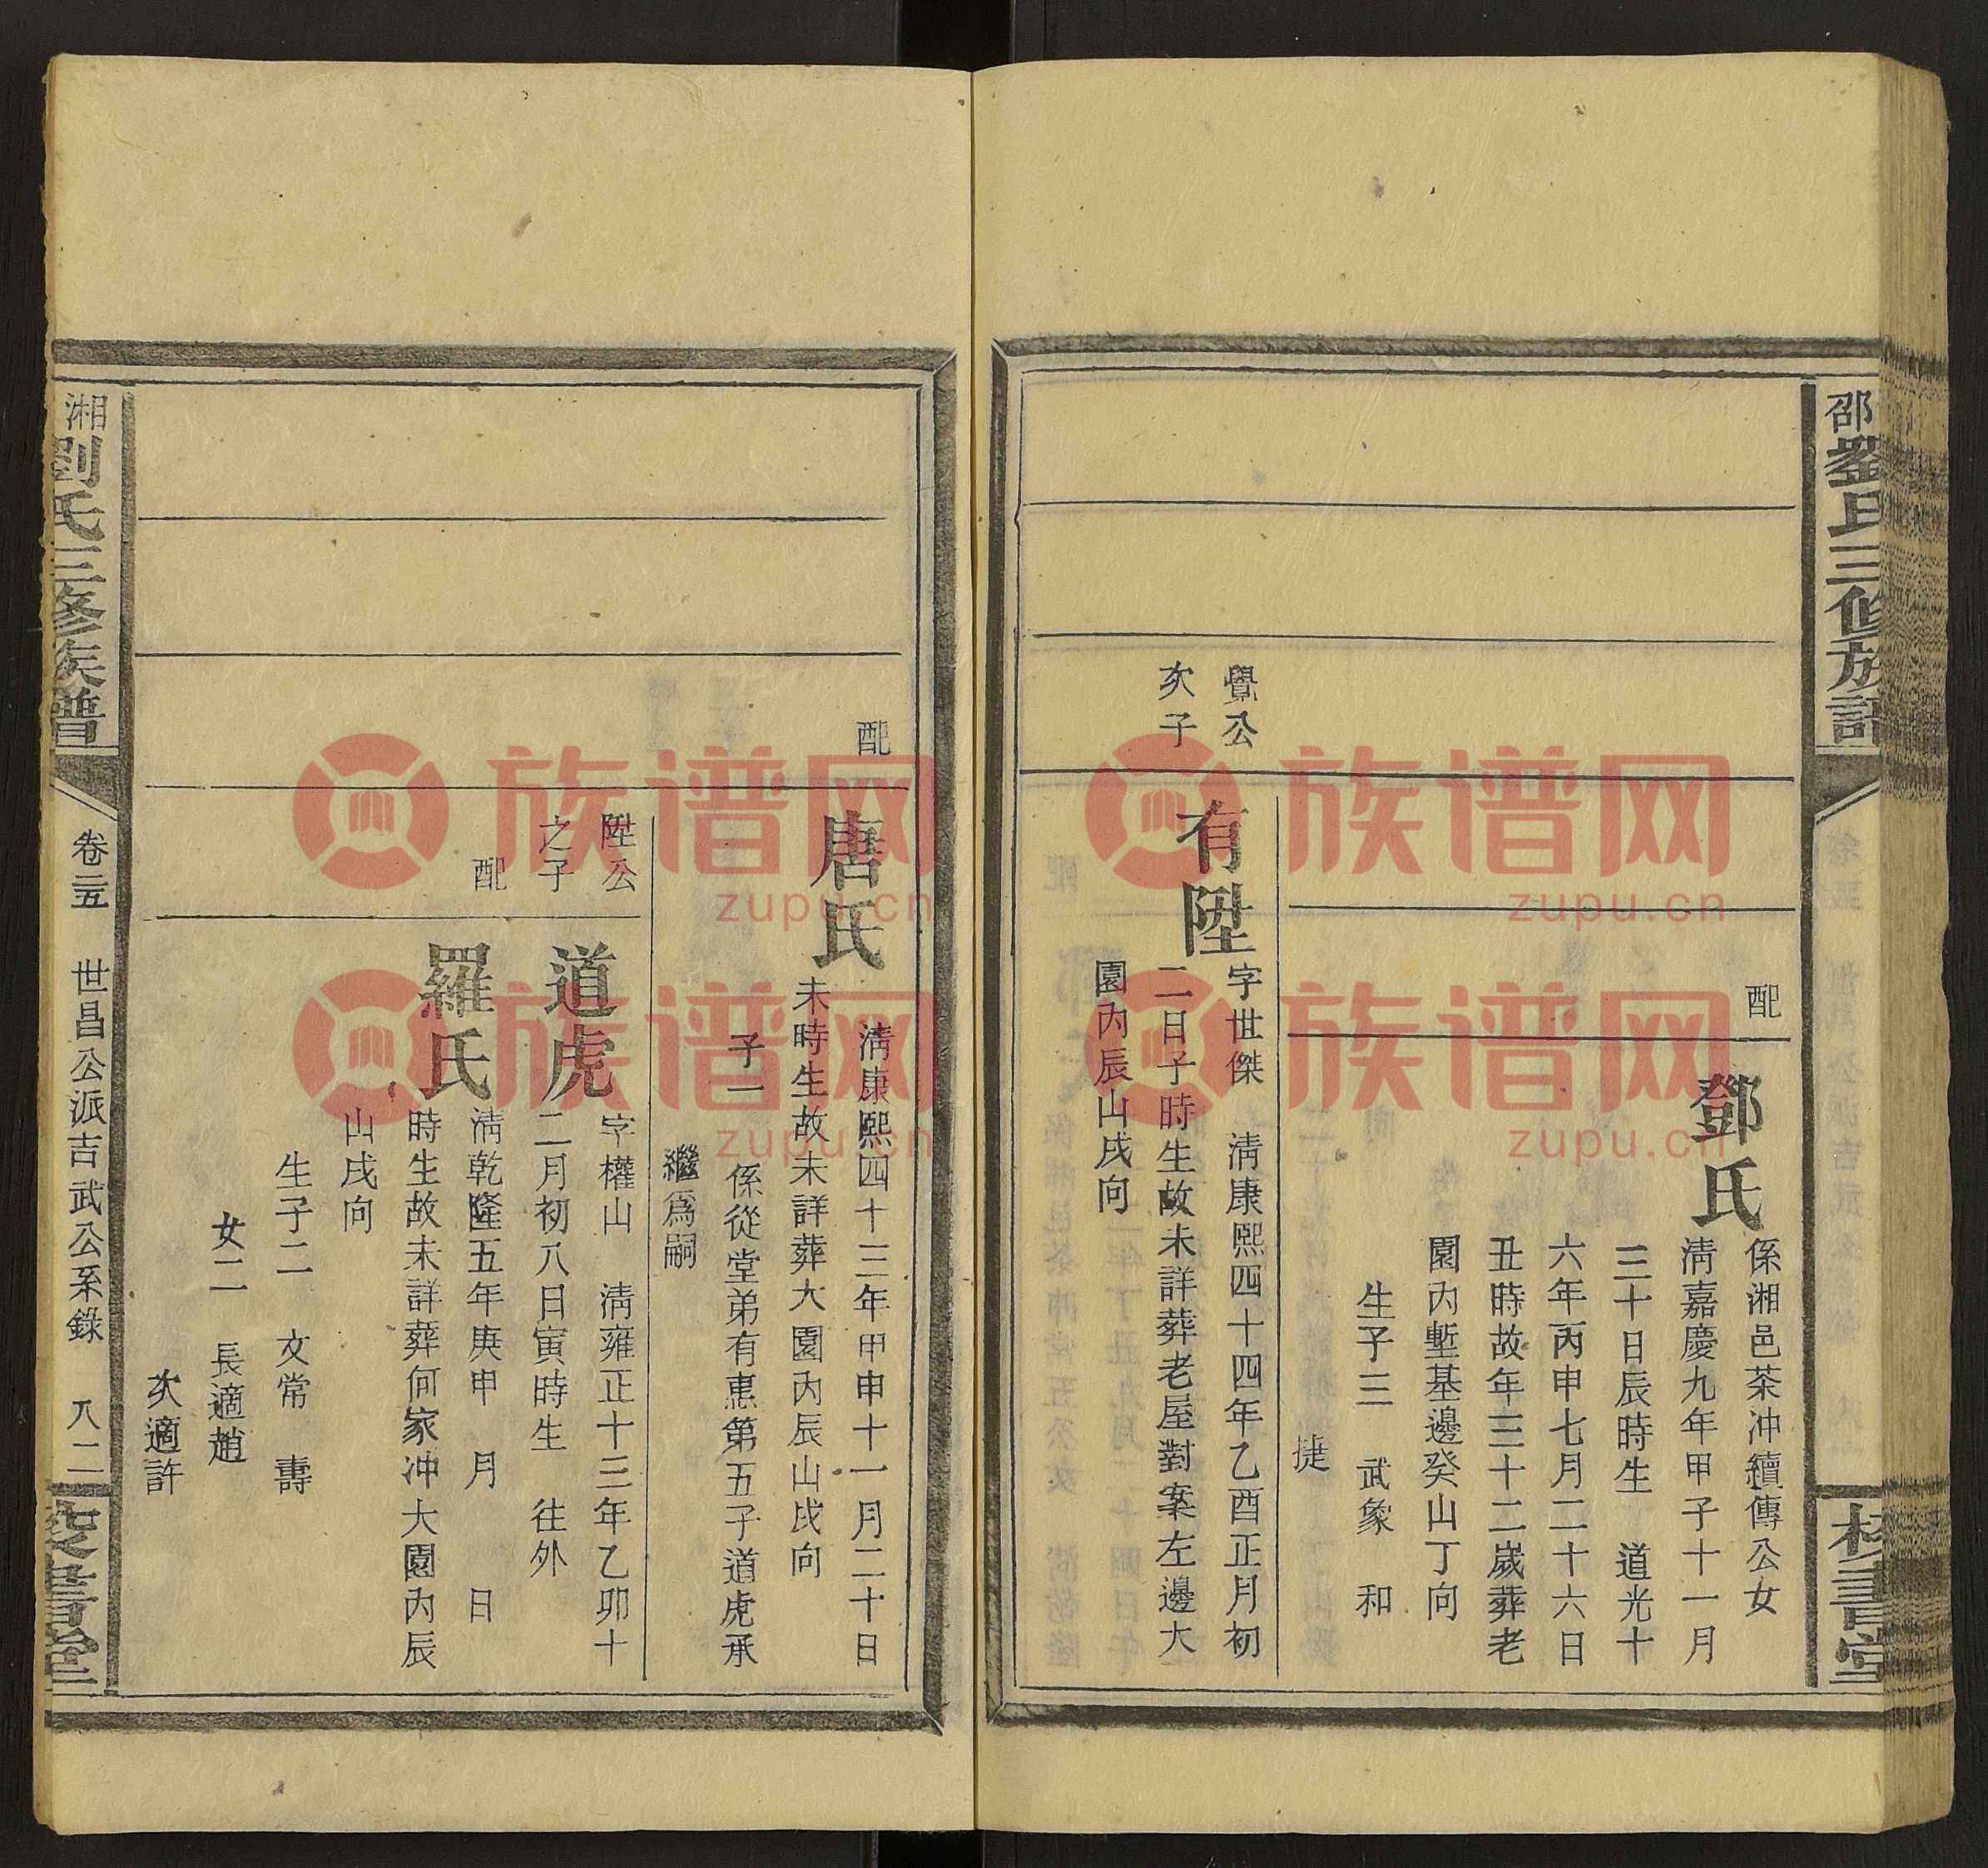 邵
劉氏三修族譜
校書堂
配
鄧氏
係湘邑茶冲續傳公女
淸嘉慶九年甲子十一月
三十日辰時生 道光十
六年丙申七月二十六日
丑時故年三十二嵗葬老
園內塹基邊癸山丁向
生子三 武象 和
捷
覺公
次子
有陞
字世傑 淸康熙四十四年乙酉正月初
二日子時生故未詳葬老屋對案左邊大
園內辰山戌向
配
唐氏
淸康熙四十三年甲申十一月二十日
未時生故未詳葬大園內辰山戌向
子一
係從堂弟有惠第五子道虎承
繼爲嗣
陞公
之子
道虎
字權山 淸雍正十三年乙卯十
二月初八日寅時生 往外
配
羅氏
淸乾隆五年庚申 月 日
時生故未詳葬何家冲大園內辰
山戌向
生子二 文常 壽
女二 長適趙
次適許
湘
劉氏三修族譜
卷二五 世昌公派吉武公系錄 八二
校書堂
族谱网
zupu.cn
族谱网
zupu.cn
族谱网
zupu.cn
族谱网
zupu.cn